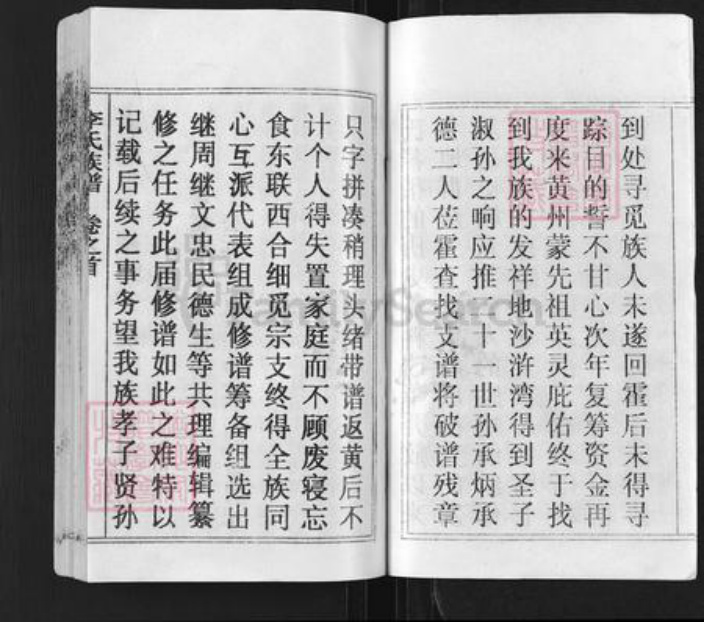 到处寻觅族人未遂回霍后未得寻
踪目的誓不甘心次年复筹资金再
度来黄州蒙先祖英灵庇佑终于找
到我族的发祥地沙浒湾得到圣子
淑孙之响应推二十一世孙承炳承
德二人莅霍查找支谱将破谱残章
只字拼凑稍理头绪带谱返黄后不
计个人得失置家庭而不顾废寝忘
食东联西合细觅宗支终得全族同
心互派代表组成修谱筹备组选出
继周继文忠民德生等共理编辑纂
修之任务此届修谱如此之难特以
记载后续之事务望我族孝子贤孙
李氏族谱 卷之首
FamilySearch